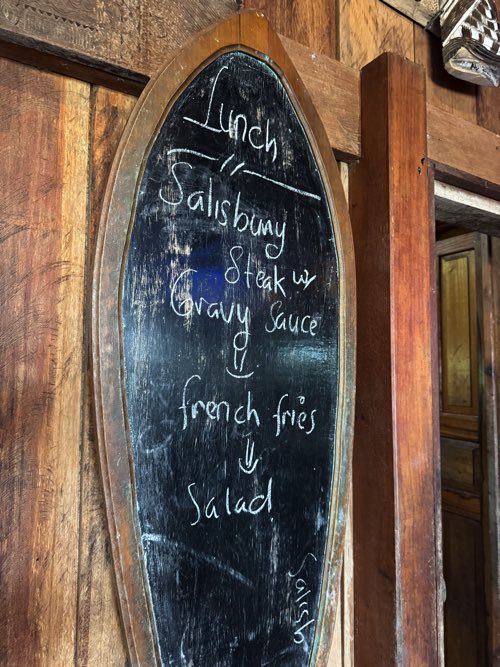 Lunch
Salisbury
Steak w/
Gravy Sauce
french fries
Salad
Salisb